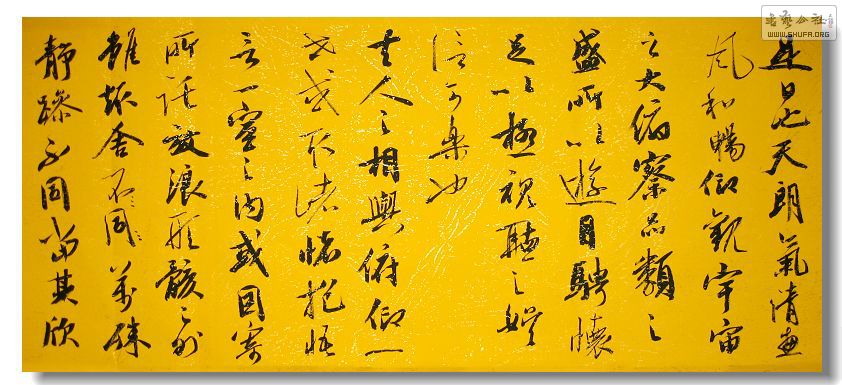 是日也天朗氣清惠
風和暢仰觀宇宙
之大俯察品類之
盛所以遊目騁懷
足以極視聽之娛
信可樂也
夫人之相與俯仰一
世或取諸懷抱悟
言一室之內或因寄
所託放浪形骸之外
雖趣舍不同萬殊
靜躁不同當其欣
書藝公社
WWW.SHUFA.ORG